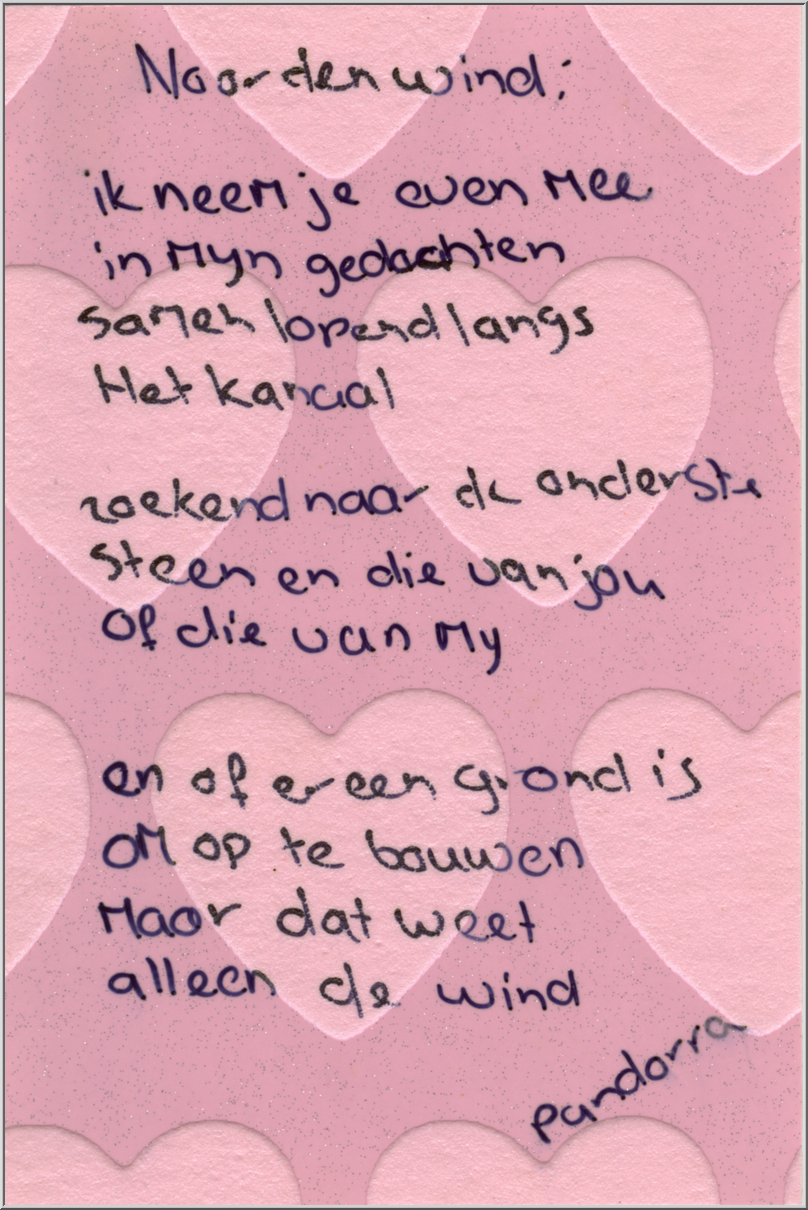 Noordenwind:
ik neem je even mee
in myn gedachten
samen lopend langs
Het kanaal
zoekend naar de onderste
steen en die van jou
of die van my
en of er een grond is
om op te bouwen
maar dat weet
alleen de wind
pandorra